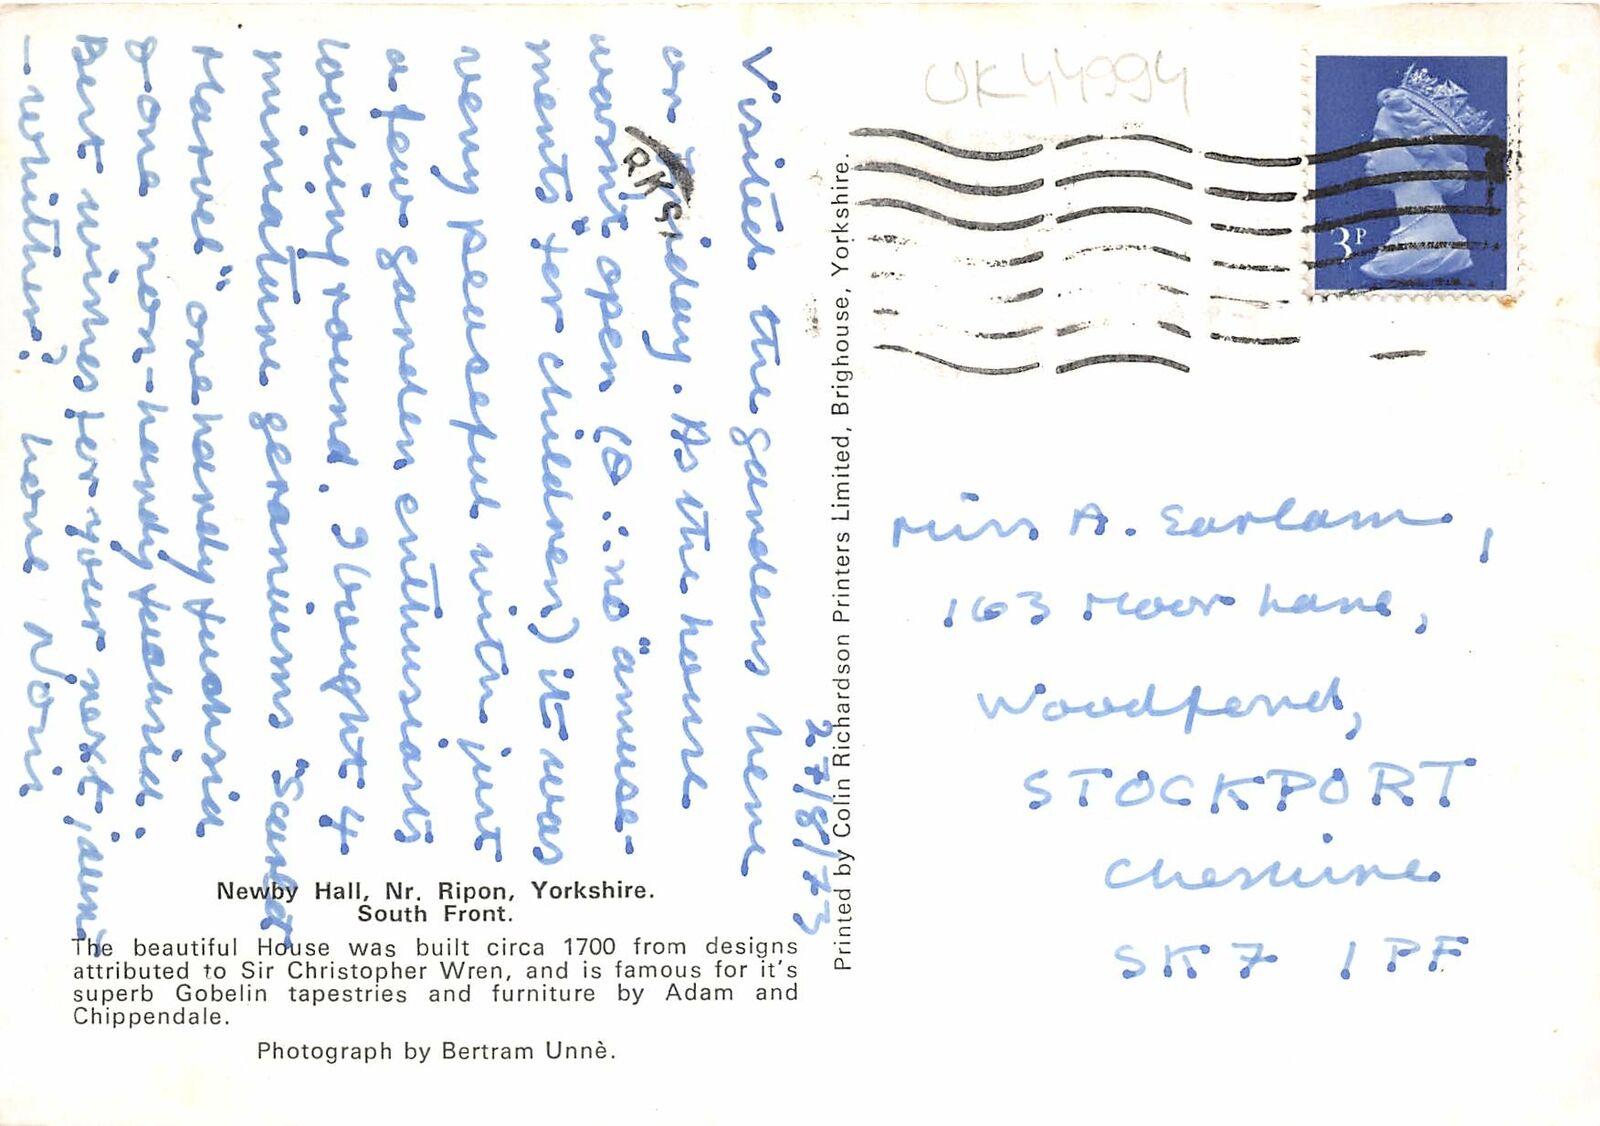 27/8/73
Visited the gardens here
on Friday. As the house
wasn't open (& ∴ no "amuse-
ments" for children) it was
very peaceful with just
a few garden enthusiasts
looking round. I bought 4
miniature geraniums "Scarlet
Marvel" one hardy fuchsia
& one non-hardy fuchsia.
Best wishes for your next 'jaun'
- whither? love Noris
Newby Hall, Nr. Ripon, Yorkshire.
South Front.
The beautiful House was built circa 1700 from designs
attributed to Sir Christopher Wren, and is famous for it's
superb Gobelin tapestries and furniture by Adam and
Chippendale.
Photograph by Bertram Unnè.
Printed by Colin Richardson Printers Limited, Brighouse, Yorkshire.
UK44994
RKS
3P
Miss A. Earlam,
163 Moor Lane,
Woodford,
STOCKPORT
Cheshire
SK7 1PF